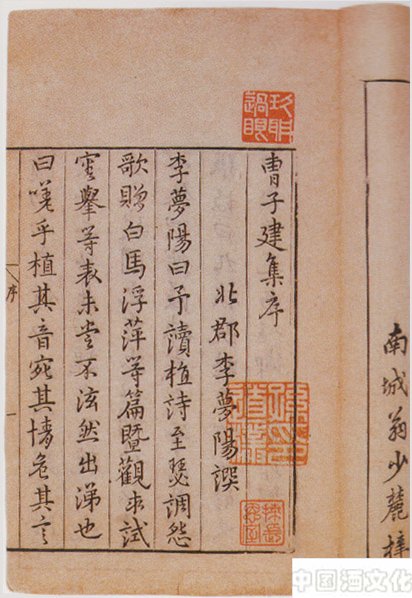 南城翁少麓梓
玖聃過眼
曹子建集序
北郡李夢陽譔
李夢陽曰予讀植詩至瑟調怨
歌贈白馬浮萍等篇暨觀求試
審舉等表未嘗不泫然出涕也
曰嗟乎植其音宛其情危其言
序
一
中国酒文化